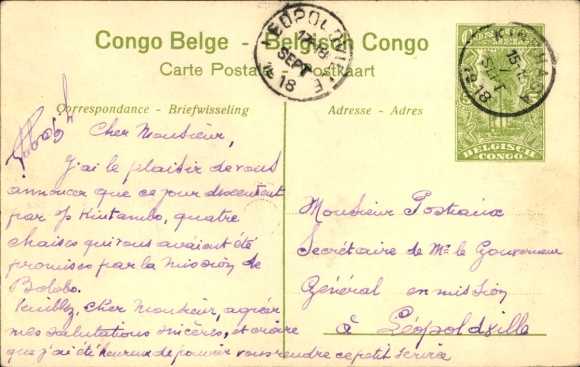 Congo Belge - Belgisch Congo
Carte Postale - Postkaart
Correspondance - Briefwisseling
Adresse - Adres
LEOPOLDVILLE
17-18
SEPT
18
KINSHASA
SEPT
1918
BELGISCH
CONGO
Cher Monsieur,
J'ai le plaisir de vous
annoncer que ce jour descendent
par Kintambo, quatre
chaises qui vous avaient été
promises par la mission de
Bolobo.
Veuillez, cher Monsieur, agréer
mes salutations sincères, et croire
que j'ai été heureux de pouvoir vous rendre ce petit service
Monsieur Postiaux
Secrétaire de Mr le Gouverneur
Général en mission
à Léopoldville